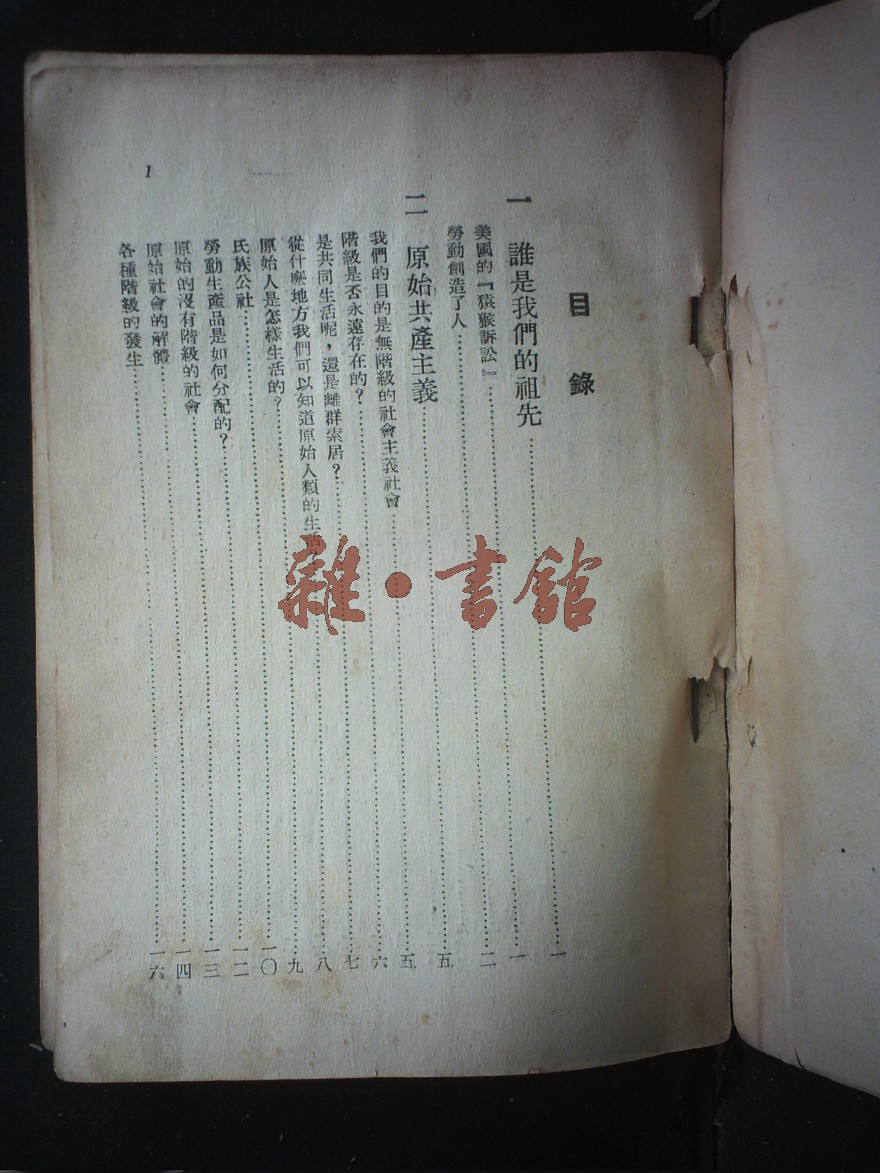 目錄
一 誰是我們的祖先……一
美國的『猿猴訴訟』……一
勞動創造了人……二
二 原始共產主義……五
我們的目的是無階級的社會主義社會……五
階級是否永遠存在的？……六
是共同生活呢，還是離群索居？……七
從什麼地方我們可以知道原始人類的生活……八
原始人是怎樣生活的？……九
氏族公社……一〇
勞動生產品是如何分配的？……一二
原始的沒有階級的社會……一三
原始社會的解體……一四
各種階級的發生……一六
1
雜·書館